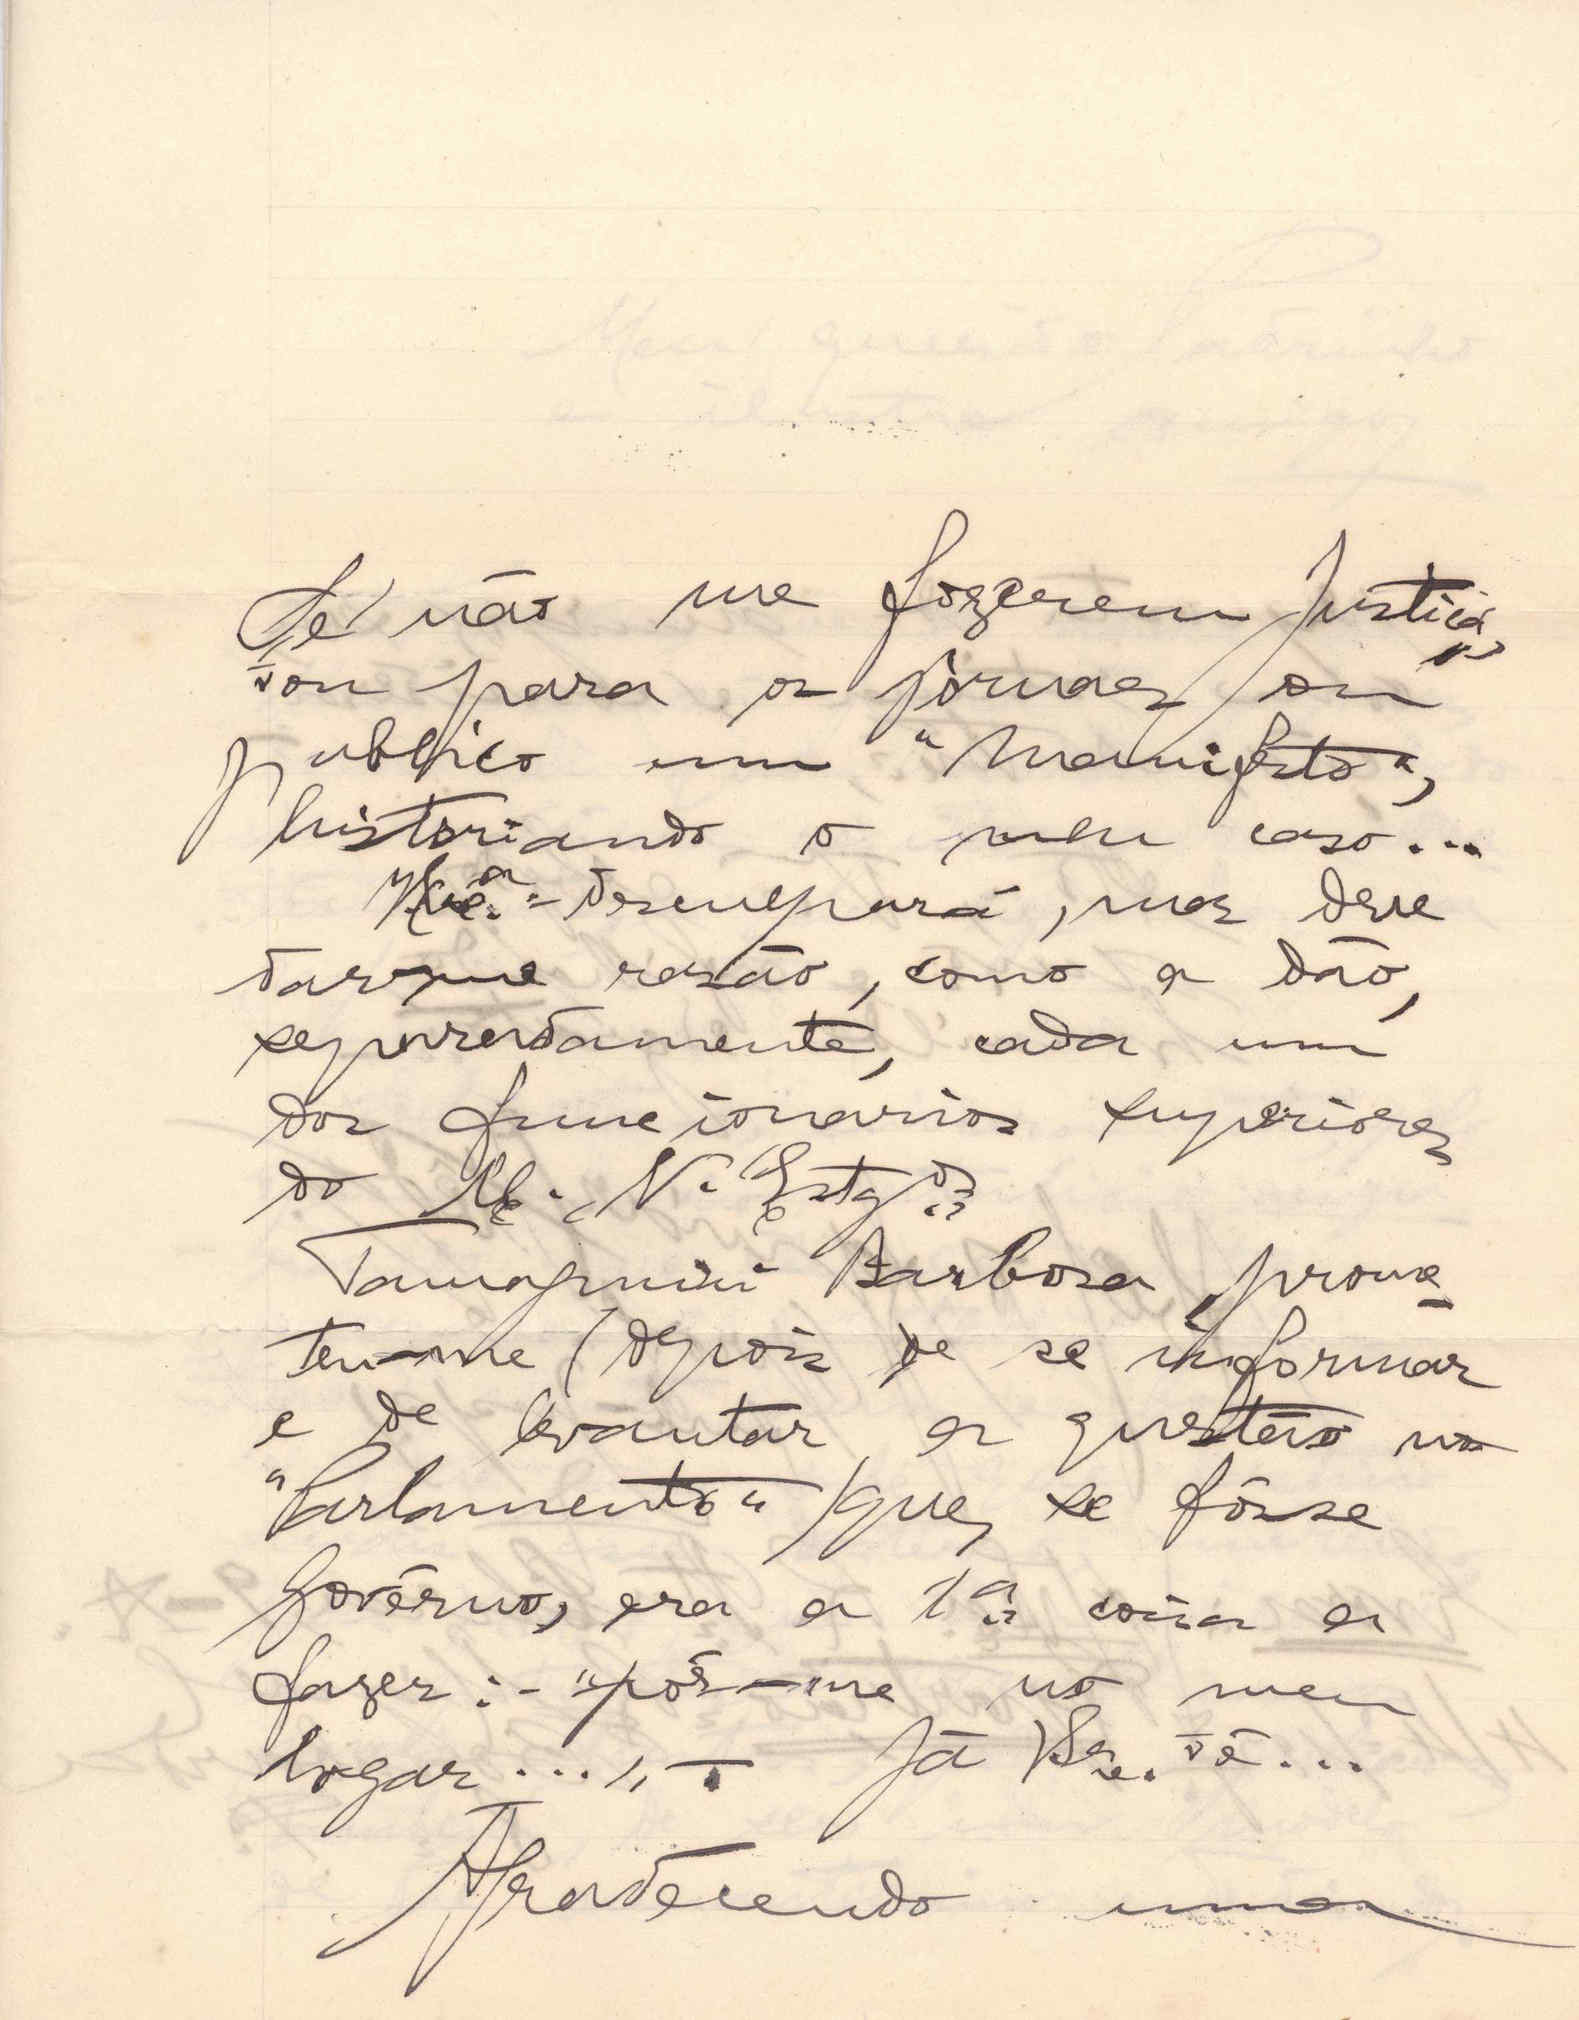 Se não me fozerem Justiça,
vou para os jornaes ou
publico um "Manifesto",
historiando o meu caso...
V. Exª. desculpará, mas deve
dar-me rasão, como a dão,
separadamente, cada um
dos funcionarios superiores
do M. N. Estgºs
Tamagnini Barbosa prome-
teu-me (depois de se informar
e de levantar a questão no
"Parlamento") que, se fôsse
Govêrno, era a 1ª coisa a
fazer: - "pôr-me no meu
logar..." - Já V. Exª. vê...
Agradecendo uma